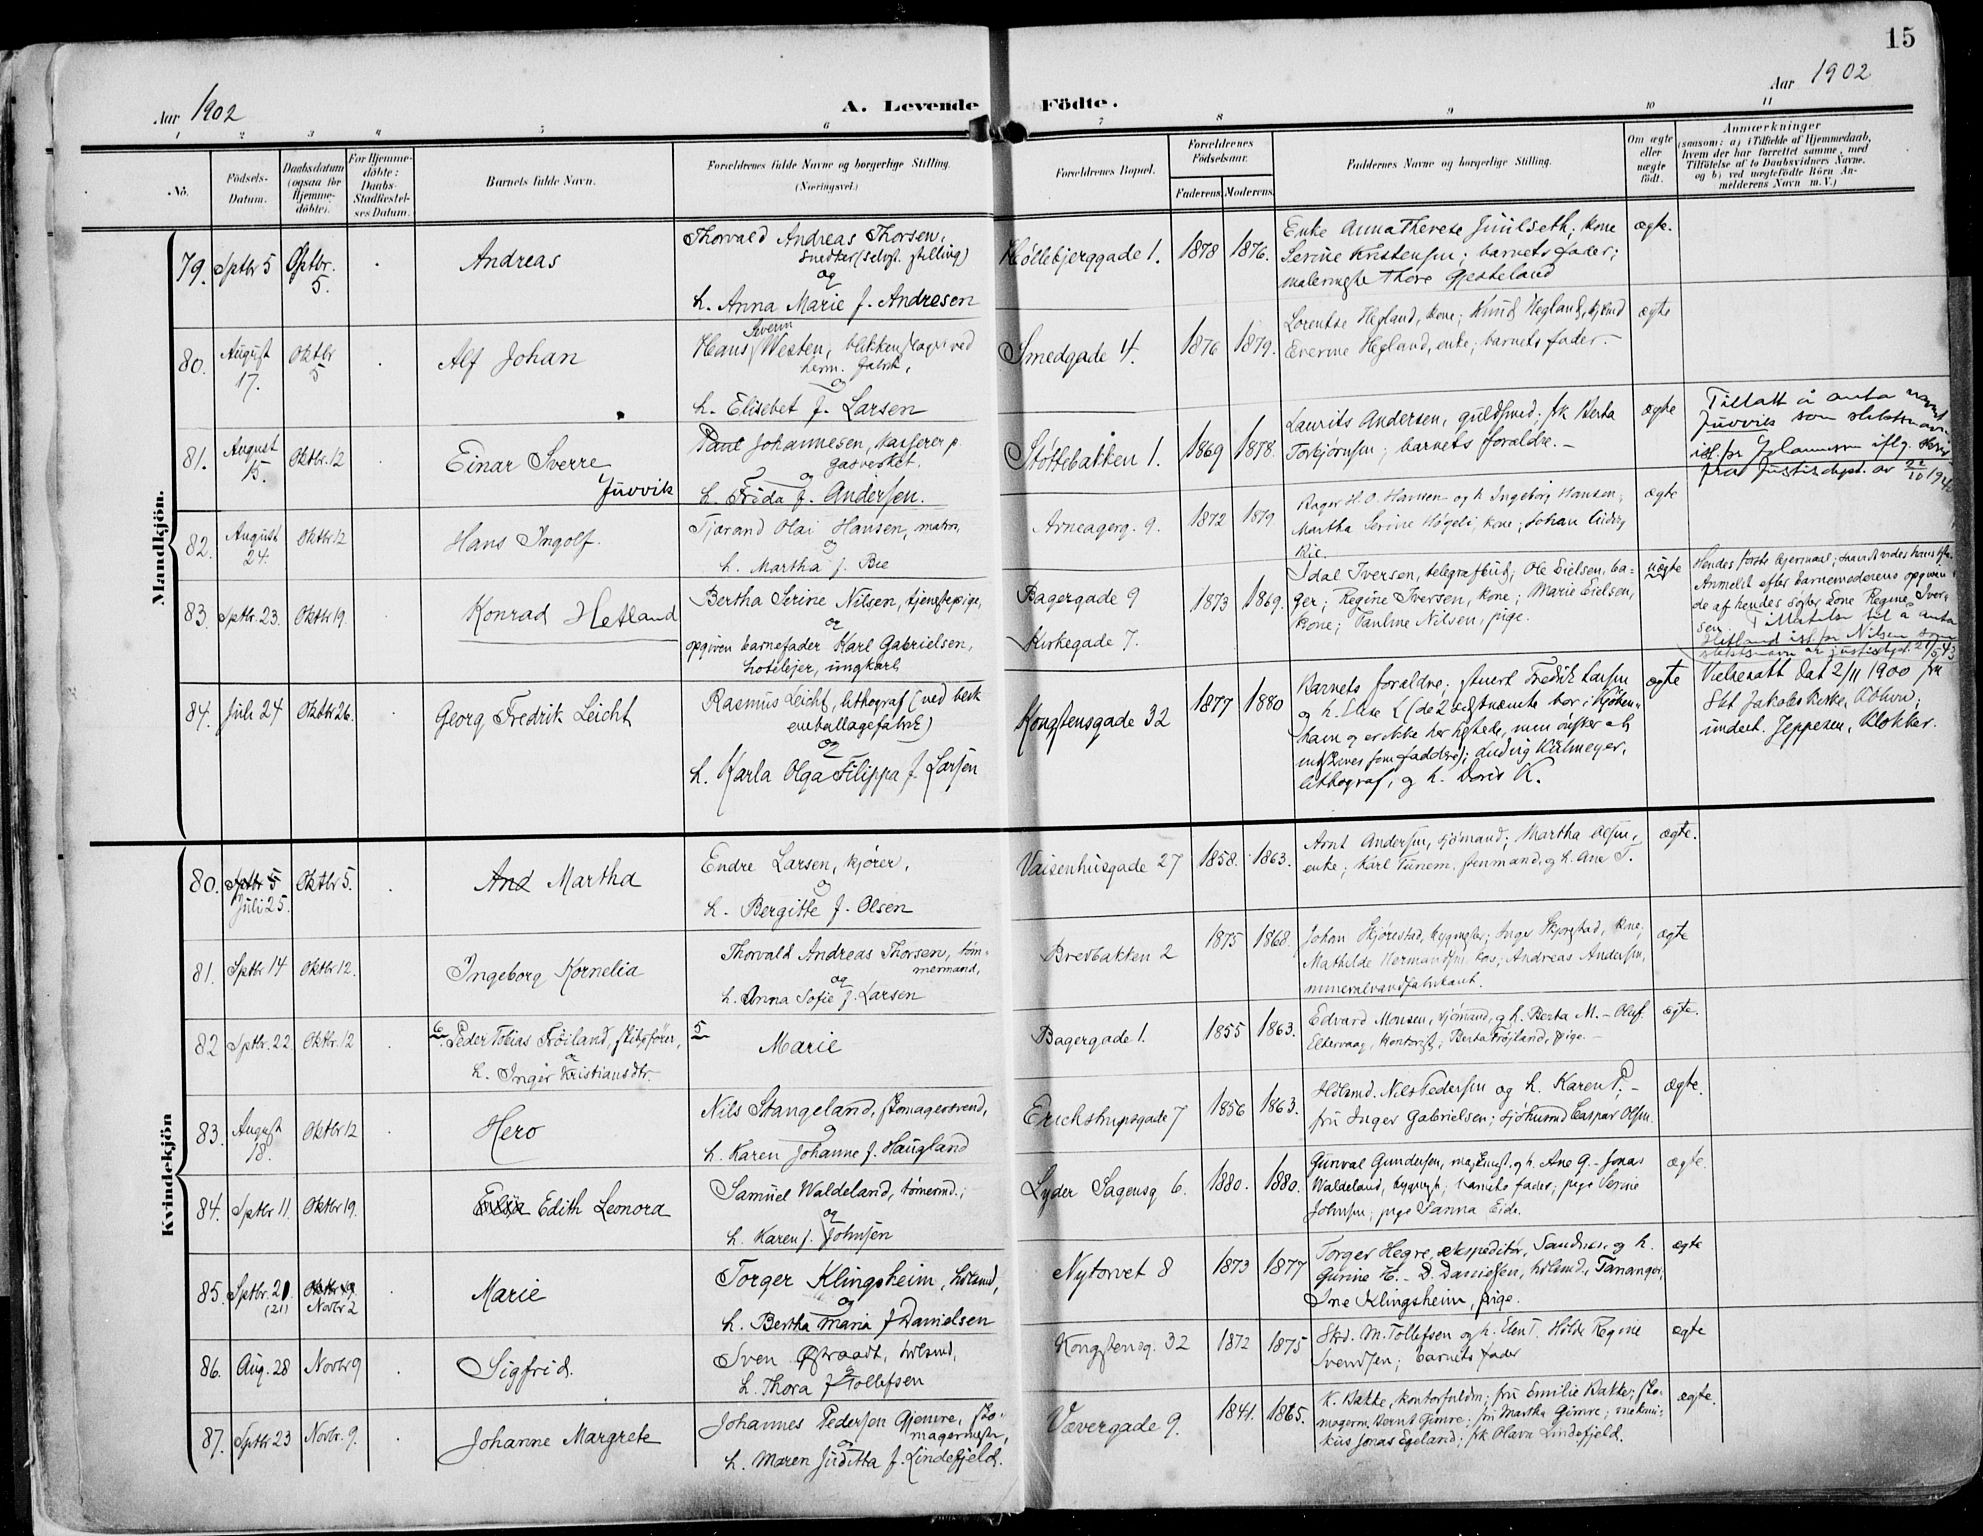 15
Aar 1902
A. Levende Födte.
Aar 1902
1 2 3 4 5 6 7 8 9 10 11
No.
Födsels-
Datum.
Daabsdatum
(ogsaa for
Hjemme-
döbte).
For Hjemme-
döbte:
Daabs-
Stadfæstel-
ses Datum.
Barnets fulde Navn.
Forældrenes fulde Navne og borgerlige Stilling.
(Næringsvei.)
Forældrenes Bopæl.
Forældrenes
Födselsaar.
Faderens. Moderens.
Faddernes Navne og borgerlige Stilling.
Om ægte
eller
uægte
födt.
Anmærkninger
(saasom: a) i Tilfælde af Hjemmedaab,
hvem der har forrettet samme, med
Tilföielse af to Daabsvidners Navne.
og b) ved uægtefödte Börn An-
melderens Navn m. V.)
Mandkjön.
79. Sptbr 5
Andreas
Thorvald Andreas Thorsen,
snedker (selvst. stilling)
og
h. Anna Marie f. Andresen
Høllebjerggade 1. 1878 1876.
Enke Anna Therese ; kone
Serine Kristensen; barnets fader;
Thore Gjesteland
ægte.
80. August
17.
Oktbr
5
Alf Johan
Hans Severin Westen, blikkenslager ved
herm. fabrik,
og
h. Elisebet f. Larsen
Smedgade 4. 1876 1879.
Lorentse Hegland, kone; Knud Hegland,
Everine Hegland, enke; barnets fader. -
ægte
81. August
15.
Oktbr. 12
Einar Sverre
Juvvik
Paul Johannesen, kasserer p.
gasverket.
og
h. Frida f. Andersen.
Støttebakken 1. 1869 1878.
Laurits Andersen, guldsmed; frk Berta
Torbjørnsen; barnets forældre. -
ægte
Tillatt å anta navnet
Juvvik som slektsnavn
ist. for Johannesen iflg. skriv
fra Justisdept. av 22/10 1942
82. August
24.
Oktbr 12
Hans Ingolf.
Tjorand Olai Hansen, matros,
og
h. Martha f. Bie
Arneagerg. 9. 1872 1879
Bager H. O. Hansen og h. Ingeborg Hansen,
Martha Serine Høgeli, kone; Johan Ludvig
Bie.
ægte
83. Sptbr. 23. Oktbr 19.
Konrad Hetland
Bertha Serine Nilsen, tjenestepige,
og
opgiven barnefader Karl Gabrielsen,
hoteleier, ungkarl
Bagergade 9
Kirkegade 7.
1873 1869.
Idal Iversen, telegrafbud; Ole Eielsen, ba-
ger; Regine Iversen, kone; Marie Eielsen,
kone; Pauline Nilsen, pige.
uægte
Anmeldt efter barnemoderens opgiven-
de af hendes søster kone Regine Iver-
sen. Tillatelse til å anta
Hetland ist. for Nilsen som
slektsnavn av justisdept.
84. Juli 24 Oktbr 26.
Georg Fredrik Leicht
Rasmus Leicht, lithograf (ved
emballagefabrik)
og
h. Karla Olga Filippa f. Larsen
Kongstensgade 32 1877 1880
Barnets forældre; Fredrik Larsen
og h. Elise L (de 2 sidstnævnte bor i Kjøben-
havn og er ikke her tilstede, men ønskes at
indskrives som faddere); Ludvig Kälmeyer,
lithograf, og h. Doris K.
ægte
Vielsesatt dat 2/11 1900 fra
Skt Jakobs kirke, Kbhvn;
undert. Jeppesen, klokker.
Kvindekjön
80. Sptbr 5
Juli 25.
Oktbr 5.
And Martha
Endre Larsen, kjører,
og
h. Bergitte f. Olsen
Vaisenhusgade 27 1858. 1863.
Arnt Andersen, sjømand; Martha Olsen,
enke; Karl Tunem, stenmand, og h. Ane T.
ægte.
81. Sptbr 14 Oktbr 12.
Ingeborg Kornelia
Thorvald Andreas Thorsen, tøm-
mermand,
og
h. Anna Sofie f. Larsen
Bredbakken 2 1875 1868.
Johan Hjørestad, bygmester; Inger Hjørestad, kone;
Mathilde Hermandsen ; Andreas Andersen,
mineralvandfabrikant.
ægte
82 Sptbr. 22 Oktbr. 12
6. Peder Tobias Frøiland, skibsfører,
og
h. Inger Kristiansdtr.
5
Marie
Bagergade 1. 1855 1863.
Edvard Monsen, sjømand, og h. Berta M. - Oluf
Eltervaag, kontorist; Berta Frøjland, pige. -
ægte.
83. August
18.
Oktbr 12
Hero
Nils Stangeland, skomagersvend,
og
h. Karen Johanne f. Haugland
Erichstrupsgade 7 1856 1863.
Hdlsmd. Nils Pedersen og h. Karen P. -
fru Inger Gabrielsen; Caspar Olsen.
ægte.
84. Sptbr 11. Oktbr 19.
Edith Leonora
Samuel Waldeland, tømermd.;
og
h. Karen f. Johnsen
Lyder Sagensg 6. 1880. 1880.
Gunval Gundersen, og h. Ane G. - Jonas
Waldeland, ; barnets fader; pige Serine
Johnsen; pige Janna Eide.
ægte.
85. Sptbr. 21.
(21)
Oktbr 19
Novbr 2
Marie
Torger Klingsheim, hdlsmd,
og
h. Bertha Maria f Danielsen
Nytorvet 8 1873 1877
Torger Hegre, ekspeditør, Sandnes, og h.
Gurine H. - D. Danielsen, hdlsmd., Tananger,
Ine Klingsheim, pige.
ægte
86. Aug. 28 Novbr 9
Sigfrid.
Sven Østraadt, hdlsmd,
og
h. Thora f Tollefsen
Kongstensg. 32 1872 1875
M. Tollefsen og h. Elen T. Hilde Regine
Svendsen; barnets fader
ægte
87. Sptbr 23 Novbr. 9.
Johanne Margrete
Johannes Pedersen Gjemre, sko-
magermester,
og
h. Maren Juditta f. Lindefjeld.
Vævergade 9. 1841. 1865.
K. Bakke, kontorfuldm; fru Emilie Bakke; sko-
magerm. Bernt Gimre; fru Martha Gimre; meknni-
kus Jonas Egeland; frk Olava Lindefjeld.
ægte.